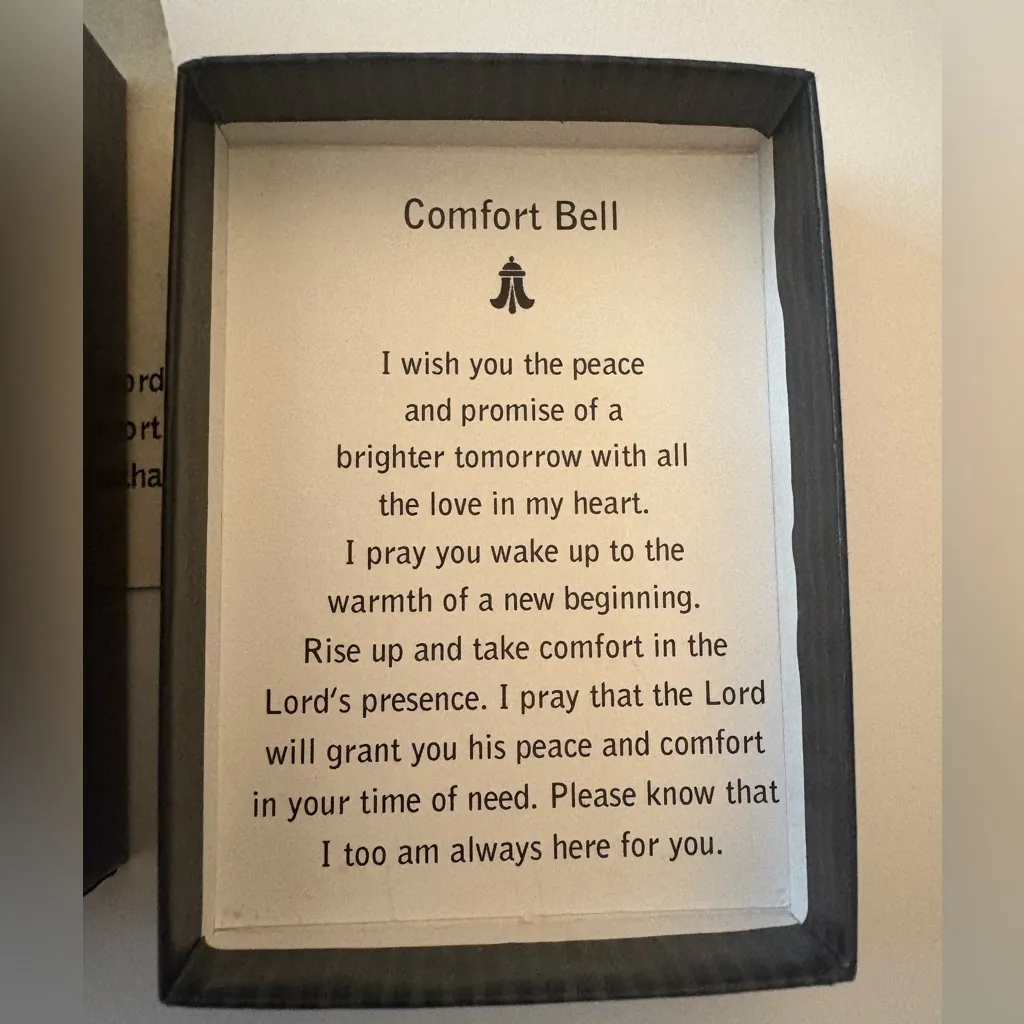 Comfort Bell
I wish you the peace
and promise of a
brighter tomorrow with all
the love in my heart.
I pray you wake up to the
warmth of a new beginning.
Rise up and take comfort in the
Lord's presence. I pray that the Lord
will grant you his peace and comfort
in your time of need. Please know that
I too am always here for you.